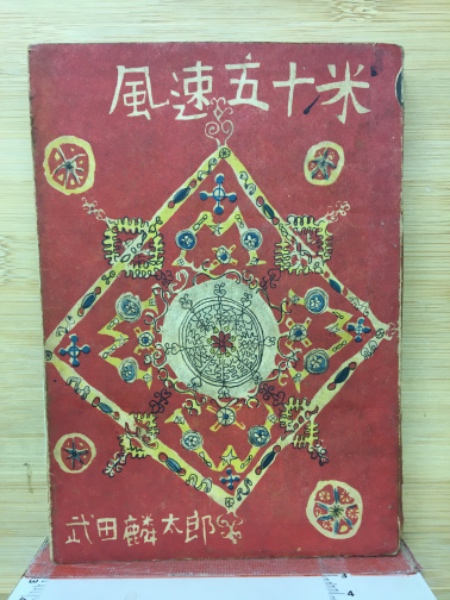 風速五十米
武田麟太郎
3
4